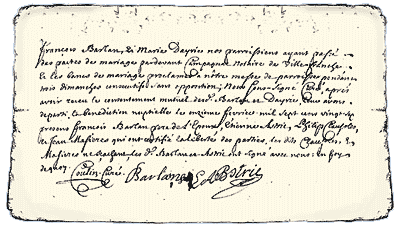 francois Barlan, & Marie Dayries nos parroissiens ayant passé
des pactes de mariage pardevant Campagnac Notaire de Ville-franche
& les bancs de mariage proclamés a nôtre messe de parroisse pendant
trois dimanches consecutifs sans opposition, Nous sous-Signé Curé, après
avoir receu le consentement mutuel desd. Barlan et Dayries leur avons
departi la benediction nuptielle le onzieme fevrier mil sept cens vingt-
presens francois Barlan pere de l'Epoux, Etienne Astrié, Philip
et Jean Masieres qui ont certifié la liberté des parties, les dits
Masieres ne Barlan et Astrié ont signé avec nous: En foy
dequoy Curé. Barlan Astrié